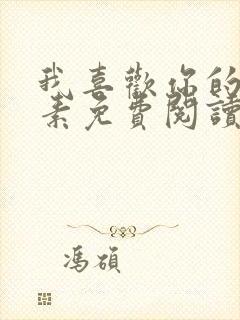 我喜歡你的
素免費閱讀
馮碩